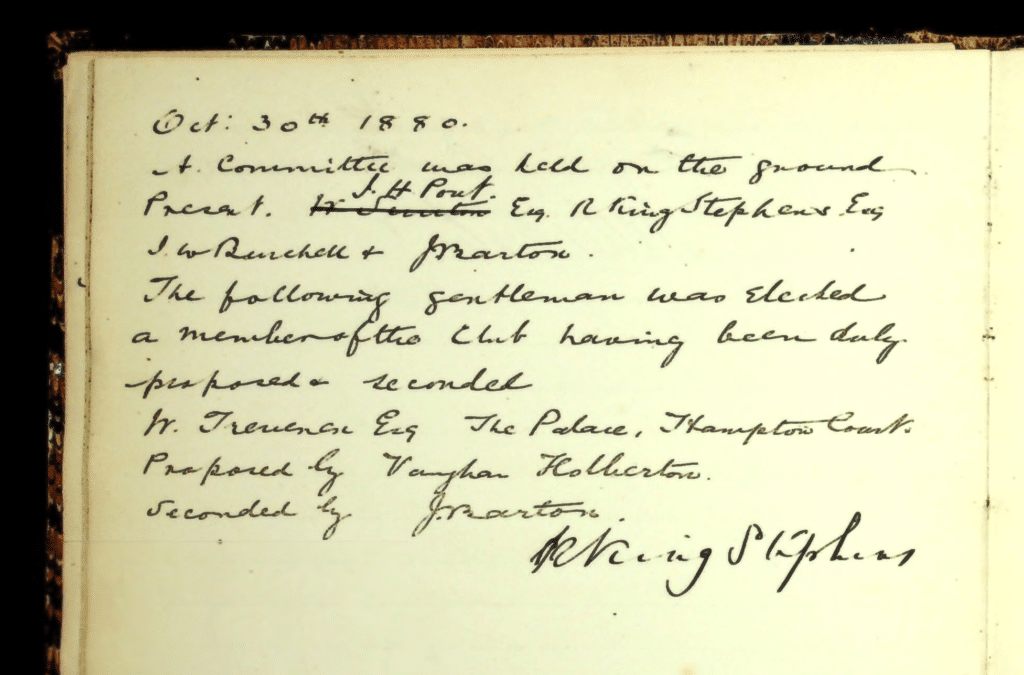 Oct: 30th 1880.
A Committee was held on the ground
J. H Pont.
Present. Esq. R King Stephens Esq
J. W Burchell & J Barton.
The following gentleman was Elected
a member of the Club having been duly
proposed & seconded
W. Trevenen Esq The Palace, Hampton Court.
Proposed by Vaughan Holberton.
Seconded by J. Barton.
R King Stephens